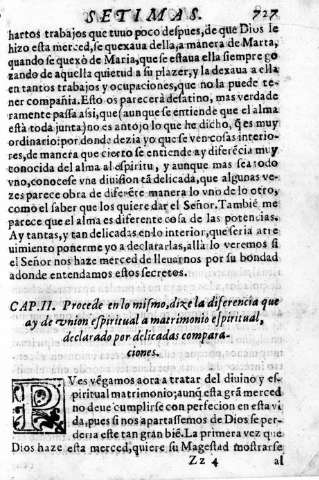 SETIMAS. 727
hartos trabajos que tuuo poco despues, de que Dios le
hizo esta merced, se quexaua della, a manera de Marta,
quando se quexò de Maria, que se estaua ella siempre go
zando de aquella quietud a su plazer, y la dexaua a ella
en tantos trabajos y ocupaciones, que no la puede te-
ner compañia. Esto os parecerà desatino, mas verdade
ramente passa assi, que (aunque se entiende que el alma
està toda junta) no es antojo lo que he dicho, q̃ es muy
ordinario: por donde dezia yo que se ven cosas interio-
res, de manera que cierto se entiende ay diferẽcia muy
conocida del alma al espiritu, y aunque mas sea todo
vno, conocese vna diuision tã delicada, que algunas ve-
zes parece obra de diferẽte manera lo vno de lo otro,
como el saber que los quiere dar el Señor. Tambiẽ me
parece que el alma es diferente cosa de las potencias.
Ay tantas, y tan delicadas en lo interior, que seria atre
uimiento ponerme yo a declararlas, allà lo veremos si
el Señor nos haze merced de lleuarnos por su bondad
adonde entendamos estos secretos.
CAP. II. Procede en lo mismo, dize la diferencia que
ay de vnion espiritual a matrimonio espiritual,
declarado por delicadas compara-
ciones.
PVes vẽgamos aora a tratar del diuino y es-
piritual matrimonio; aunq̃ esta grã merced
no deue cumplirse con perfecion en esta vi
da, pues si nos apartassemos de Dios se per-
deria este tan grãn biẽ. La primera vez que
Dios haze esta merced, quiere su Magestad mostrarse
Zz 4 al